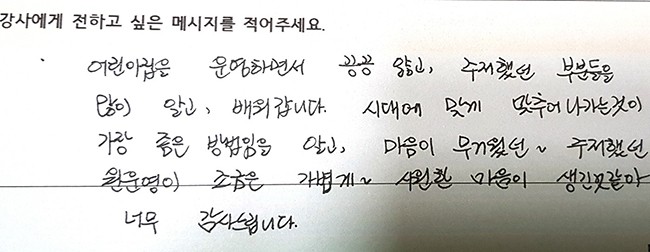 강사에게 전하고 싶은 메시지를 적어주세요.
어린이집을 운영하면서 끙끙 앓고, 주저했던 부분들을
많이 알고, 배워갑니다. 시대에 맞게 맞추어나가는것이
가장 좋은 방법임을 알고, 마음이 무거웠던~ 주저했던
원운영이 조금은 가볍게~ 시원한 마음이 생긴것같아
너무 감사드립니다.